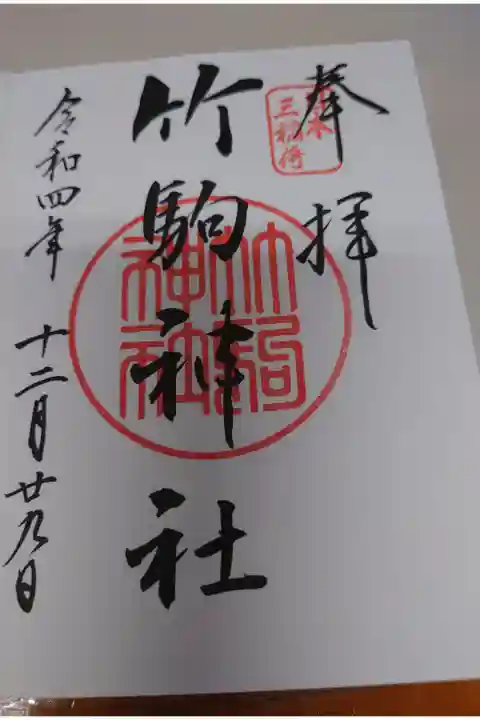 奉拝
日本
三稲荷
竹駒神社
竹駒
神社
令和四年 十二月廿九日